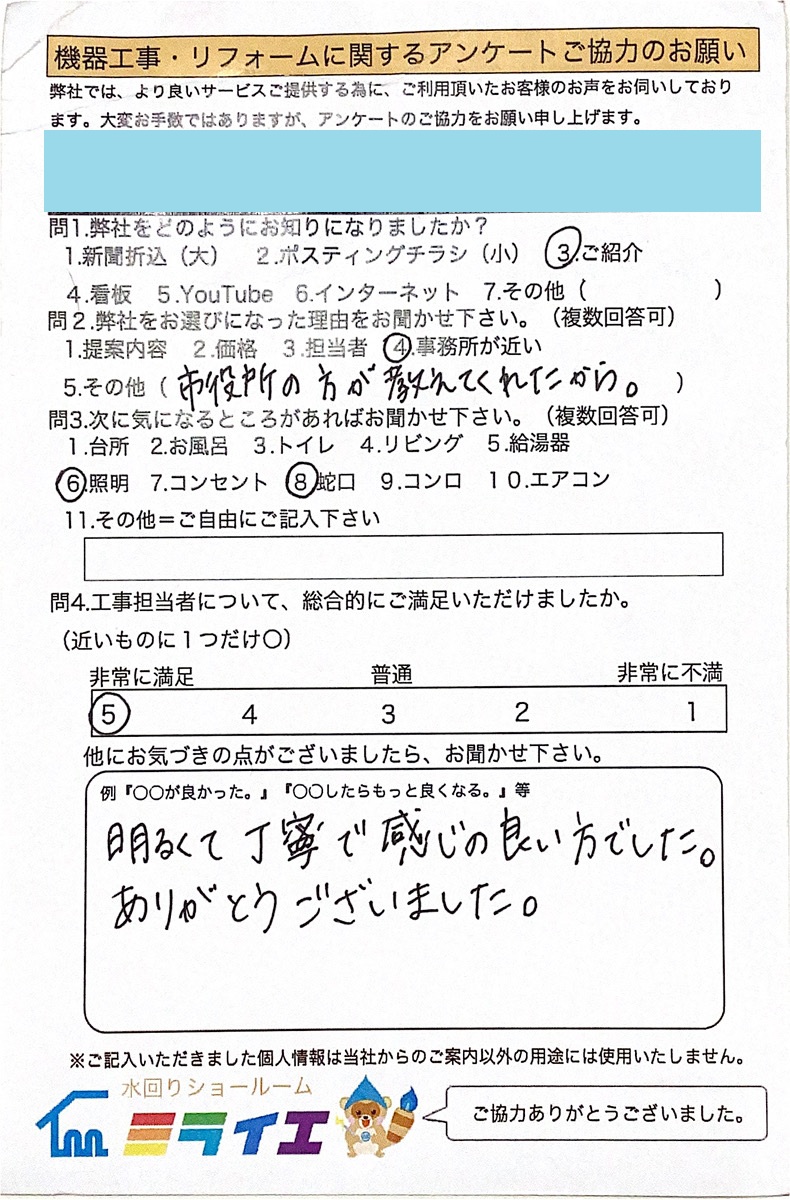 機器工事・リフォームに関するアンケートご協力のお願い
弊社では、より良いサービスご提供する為に、ご利用頂いたお客様のお声をお伺いしており
ます。大変お手数ではありますが、アンケートのご協力をお願い申し上げます。
問1.弊社をどのようにお知りになりましたか？
1.新聞折込（大）　2.ポスティングチラシ（小）　3.ご紹介
4.看板　5.YouTube　6.インターネット　7.その他（　　　　　）
問2.弊社をお選びになった理由をお聞かせ下さい。（複数回答可）
1.提案内容　2.価格　3.担当者　4.事務所が近い
5.その他（ 市役所の方が教えてくれたから。 ）
問3.次に気になるところがあればお聞かせ下さい。（複数回答可）
1.台所　2.お風呂　3.トイレ　4.リビング　5.給湯器
6.照明　7.コンセント　8.蛇口　9.コンロ　10.エアコン
11.その他＝ご自由にご記入下さい
問4.工事担当者について、総合的にご満足いただけましたか。
（近いものに1つだけ〇）
非常に満足　普通　非常に不満
5　4　3　2　1
他にお気づきの点がございましたら、お聞かせ下さい。
例『〇〇が良かった。』『〇〇したらもっと良くなる。』等
明るくて丁寧で感じの良い方でした。
ありがとうございました。
※ご記入いただきました個人情報は当社からのご案内以外の用途には使用いたしません。
水回りショールーム
ミライエ
ご協力ありがとうございました。